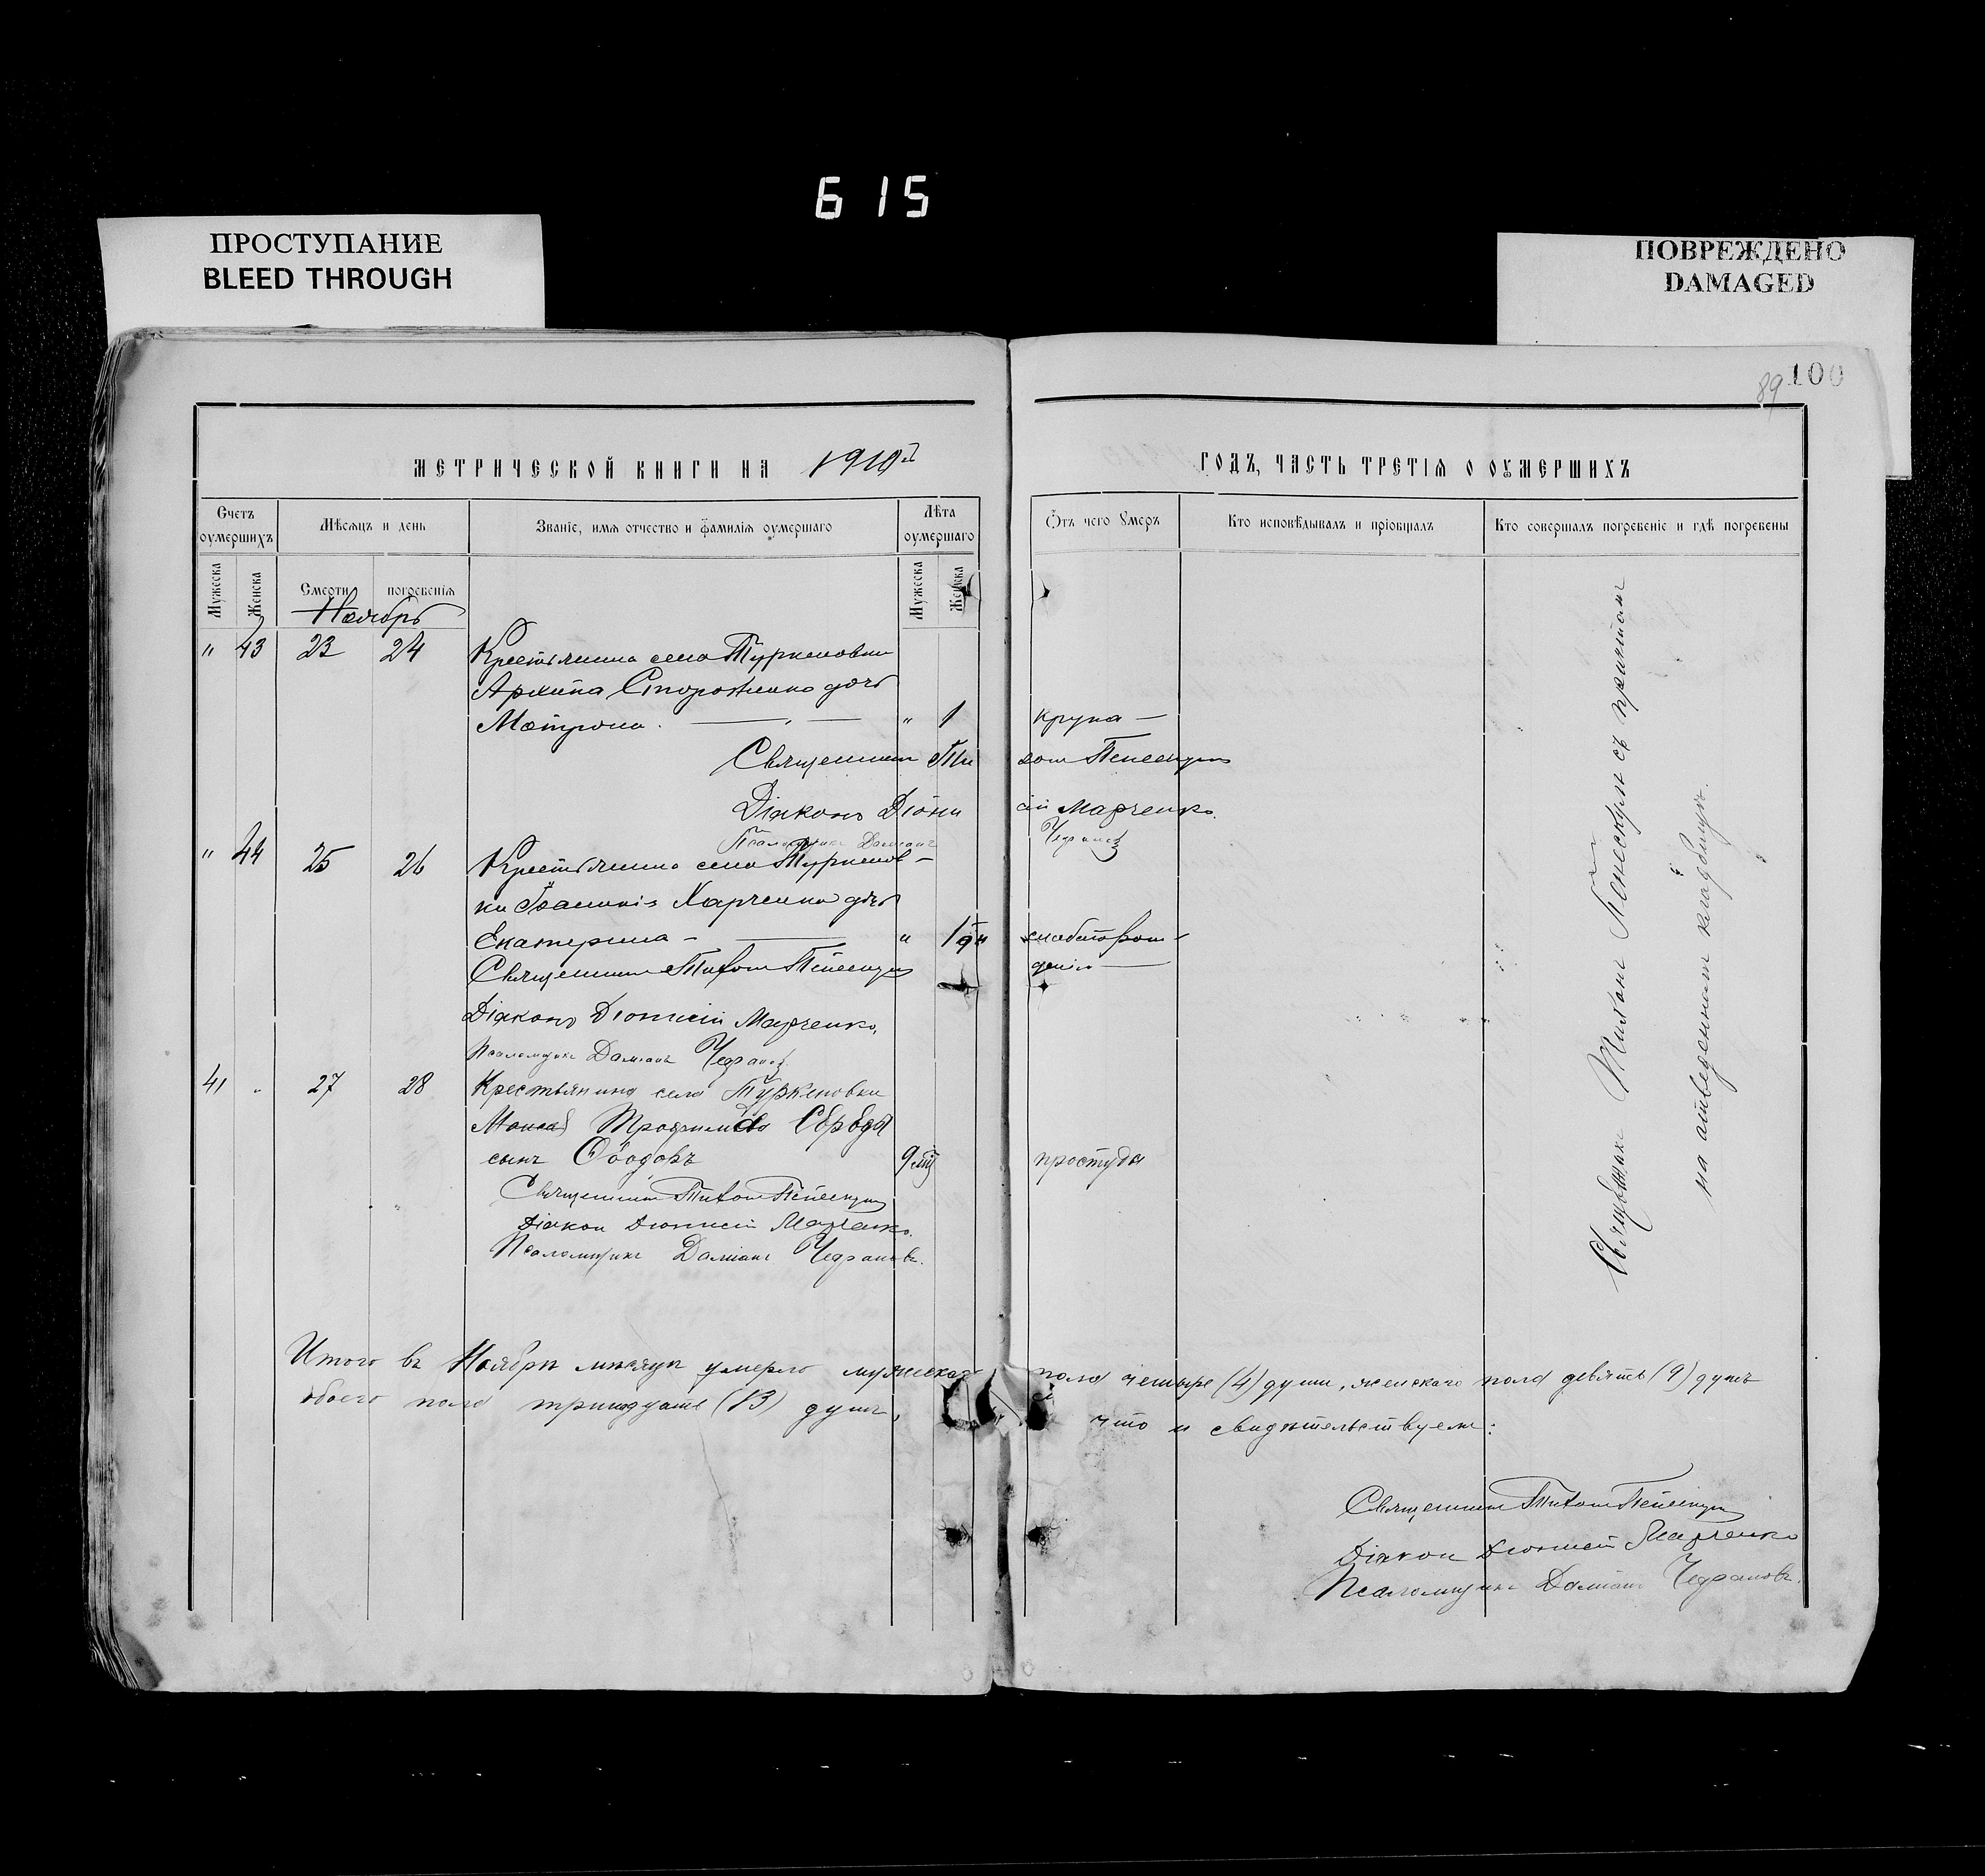 615
ПРОСТУПАНИЕ
BLEED THROUGH
ПОВРЕЖДЕНО
DAMAGED
89 100
МЕТРИЧЕСКОЙ КНИГИ НА 1910й
Счетъ оумершихъ
Мѣсяцъ и день
Званіе, имя отчество и фамилія оумершаго
Лѣта оумершаго
Мужеска
Женска
Смерти
погребенія
Мужеска
Женска
Ноябрь
" 43 23 24 Крестьянина села Туркеновки
Архипа Стороженко дочь
Матрона. " 1
" 44 25 26 Крестьянина села Туркенов-
ки Іоанна Харченко дочь
Екатерина - " 1 дн
Священникъ Тихонъ
Діаконъ Діонисій Марченко,
Псаломщикъ Даміанъ
41 " 27 28 Крестьянина села Туркеновки
Трофимова
сынъ Ѳеодоръ 9
Священникъ Тихонъ
Діаконъ Діонисій Марченко.
Псаломщикъ Даміанъ
ГОДЪ, ЧАСТЬ ТРЕТІЯ О ОУМЕРШИХЪ
Ѿтъ чего Умеръ
Кто исповѣдывалъ и пріобщалъ
Кто совершалъ погребеніе и гдѣ погребены
крупа —
Священникъ Тихонъ
Діаконъ Діонисій Марченко.
Псаломщикъ Даміанъ
простуды
Священникъ Тихонъ съ причтомъ
на отведенномъ кладбищѣ.
Итого въ Ноябрѣ мѣсяцѣ умерло мужескаго пола четыре (4) души, женскаго пола девять (9) душъ
обоего пола тринадцать (13) душъ, что и свидѣтельствуемъ:
Священникъ Тихонъ
Діаконъ Діонисій Марченко
Псаломщикъ Даміанъ